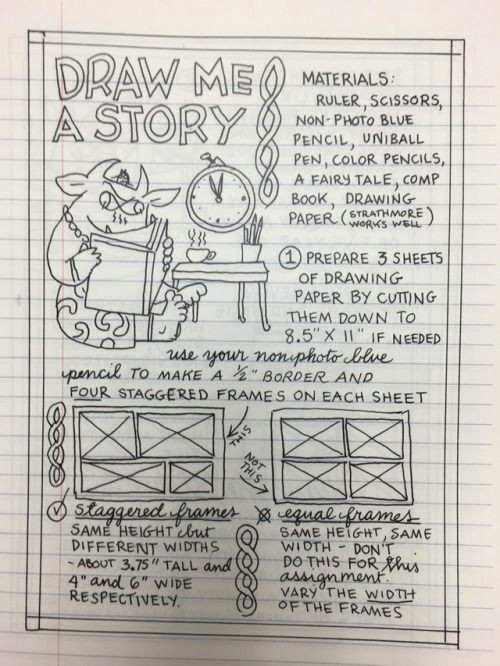 DRAW ME
A STORY
MATERIALS:
RULER, SCISSORS,
NON-PHOTO BLUE
PENCIL, UNIBALL
PEN, COLOR PENCILS,
A FAIRY TALE, COMP
BOOK, DRAWING
PAPER (STRATHMORE WORKS WELL)
1 PREPARE 3 SHEETS
OF DRAWING
PAPER BY CUTTING
THEM DOWN TO
8.5" X 11" IF NEEDED
use your nonphoto blue
pencil TO MAKE A ½" BORDER AND
FOUR STAGGERED FRAMES ON EACH SHEET
THIS
NOT THIS
staggered frames
SAME HEIGHT but
DIFFERENT WIDTHS
- ABOUT 3.75" TALL and
4" and 6" WIDE
RESPECTIVELY.
equal frames
SAME HEIGHT, SAME
WIDTH - DON'T
DO THIS FOR this
assignment.
VARY THE WIDTH
OF THE FRAMES